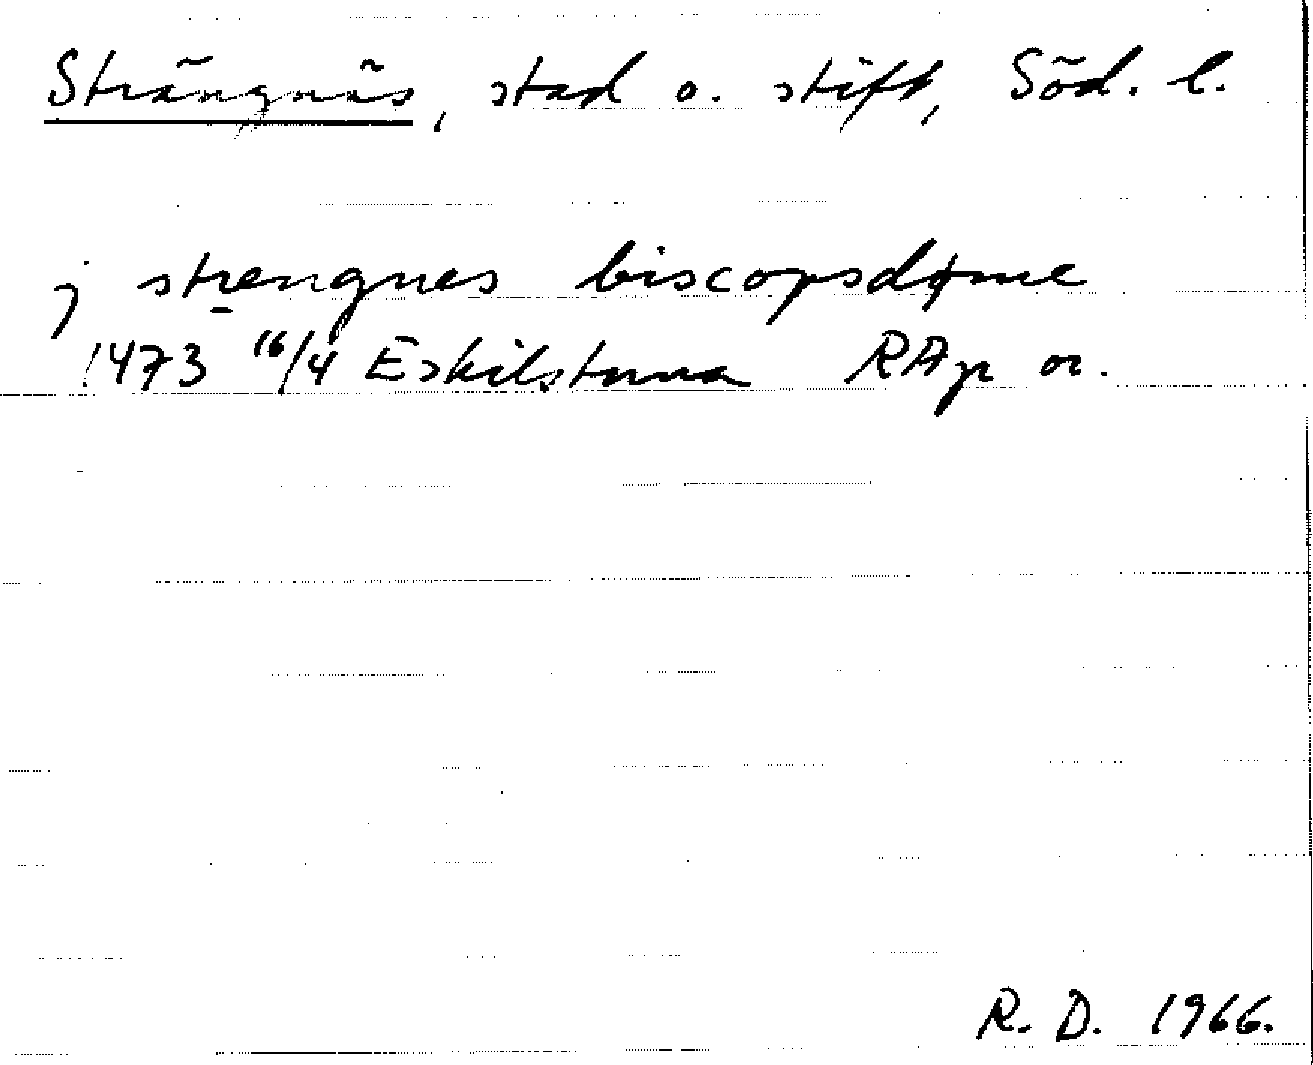 Strängnäs, stad o. stift, Söd. l.
j strengnes biscopsdøme
1473 16/4 Eskilstuna RAp or.
R. D. 1966.